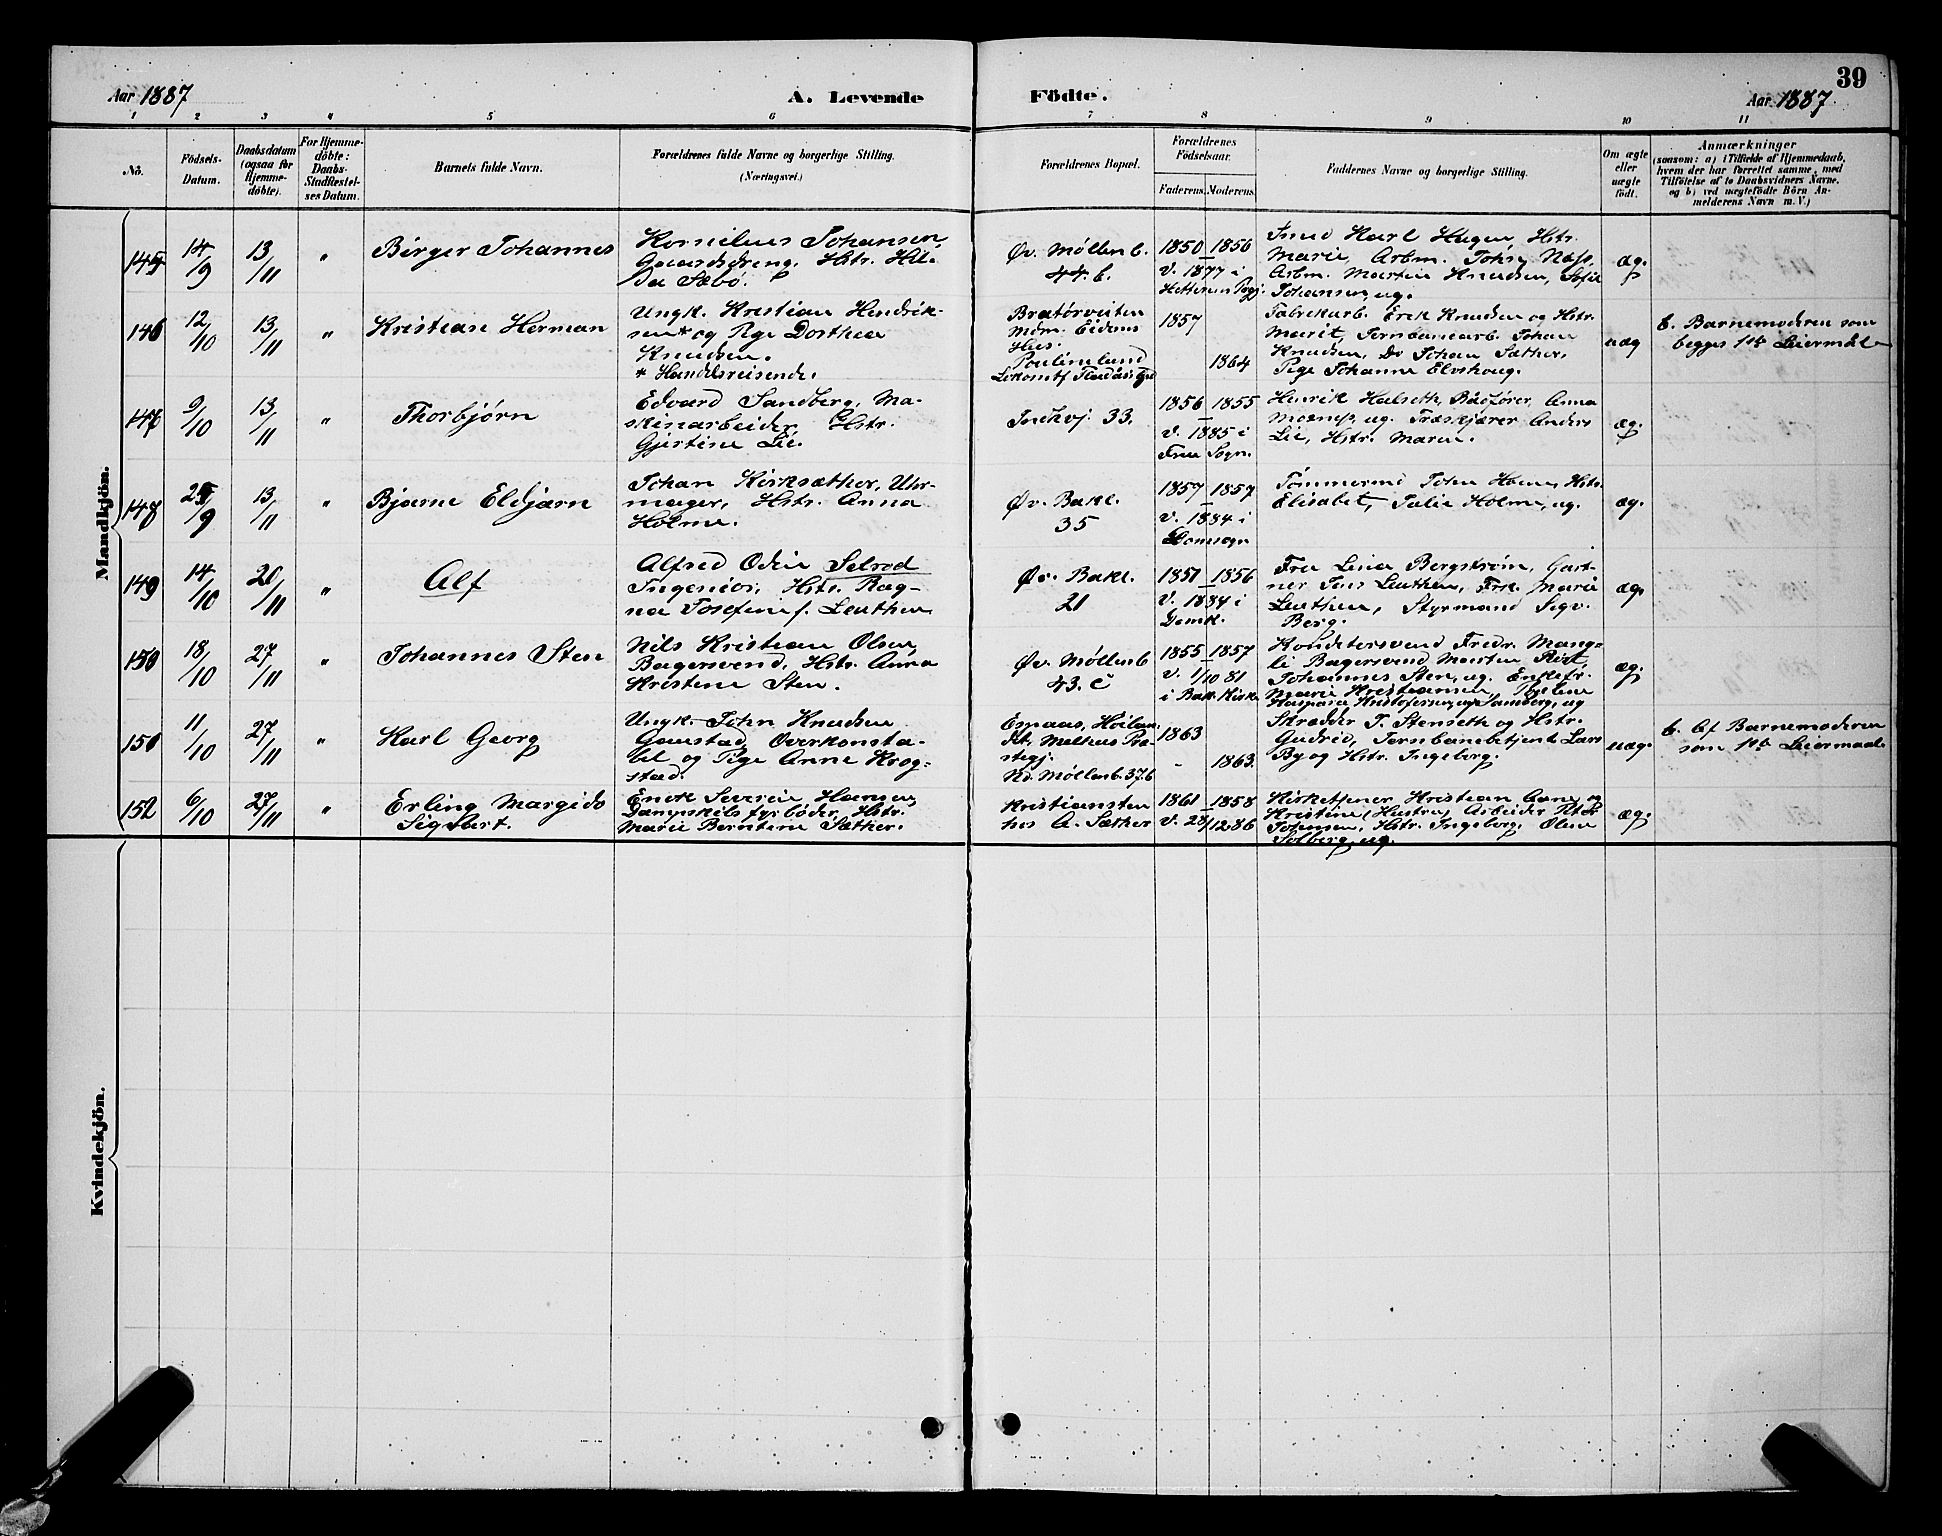 39
Aar 1887
A. Levende
Födte.
Aar 1887
1 2 3 4 5 6 7 8 9 10 11
No.
Födsels-
Datum.
Daabsdatum
(ogsaa for
Hjemme-
döbte).
For Hjemme-
döbte:
Daabs-
Stadfæstel-
ses Datum.
Barnets fulde Navn.
Forældrenes fulde Navne og borgerlige Stilling.
(Næringsvei.)
Forældrenes Bopæl.
Forældrenes
Födselsaar.
Faderens. Moderens.
Faddernes Navne og borgerlige Stilling.
Om ægte
eller
uægte
födt.
Anmærkninger
(saasom: a) i Tilfælde af Hjemmedaab,
hvem der har forrettet samme, med
Tilföielse af to Daabsvidners Navne,
og b) ved uægtefödte Börn An-
melderens Navn m. V.)
Mandkjön.
145 14/9 13/11 " Birger Johannes
Kornelius Johansen,
Gaardsdreng, Hstr. Hil-
da Sæbö.
Øv. Møllenb.
44. b.
1850 1856
v. 1877 i
Smed Karl Hagen, Hstr.
Marie, Arbm. Johs. Næss,
Arbm. Martin Knudsen, Sofie
Johansen, ug.
æg.
146 12/10 13/11 " Kristian Herman
Ungk. Kristian Hendrik-
sen* og Pige Dorthea
Knudsen.
* Handelsreisende.
Bratørveiten
Mdm. Eidems
Hus.
1857
1864
Fabrikarb. Erik Knudsen og Hstr.
Marit, Jernbanearb. Johan
Knudsen, Do Johan Sæther,
Pige Johanne Elvshaug.
uæg
E. Barnemoderen som
begges 1ste Leiermål
147 9/10 13/11 " Thorbjørn
Edvard Sandberg, Ma-
skinarbeider, Hstr.
Gjertine Lie.
Indhvj. 33.
1856 1855
v. 1885 i
Frue Sogn.
Henrik Halseth, Bådfører, Anna
ug. Træskjærer Anders
Lie, Hstr. Maren.
æg.
148 25/9 13/11 " Bjarne Eldjarn
Johan Kirksæther, Uhr-
mager, Hstr. Anna
Holme.
Øv. Bakl.
35
1857 1857
v. 1884 i
Domsogn
Tömmermd John Holme, Hstr.
Elisabet, Julie Holme, ug.
æg.
149 14/10 20/11 " Alf
Alfred Odin Selrod
Ingeniör, Hstr. Rag-
na Josefine f. Leuthen
Øv. Bakl.
21
1851 1856
v. 1884 i
Domk.
Fru Lina Bergström, Gart-
ner Jens Leuthen, Frk. Marie
Leuthen, Styrmand Sigv.
Berg.
æg.
150 18/10 27/11 " Johannes Sten
Nils Kristian Olsen,
Bagersvend, Hstr. Anna
Kristine Sten.
Øv. Møllenb
43. c
1855 1857
v. 1/10 81
i Bak. Kirke
Konditersvend Fredr. Mang-
li Bagersvend Morten Rise,
Johannes Sten, ug. Enkefr.
Marie Kristiansen,
æg.
151 11/10 27/11 " Karl Georg
Ungk. John Knudsen
Gaustad, Overkonsta-
bel og Pige Anne Krog-
stad.
Melhus Præ-
stegj.
Nd. Møllenb. 37b
1863
" 1863.
Skrædder J. Stenseth og Hstr.
Gudrid, Jernbanebetjent Lars
By og Hstr. Ingeborg.
uæg.
E. Af Barnemoderen
som 1ste Leiermaal
152 6/10 27/11 " Erling Margido
Sigvart.
Enok Severin Hansen,
Dampskibsfyrbøder, Hstr.
Marie Berntine Sæther.
Kristiansten
hos A. Sæther
1861 1858
v. 28/12 86
Kirketjener Kristian Aune og
Kristine (Hustru) Arbeider
Johnsen, Hstr. Ingeborg. Oline
Solberg, ug.
æg.
Kvindekjön.